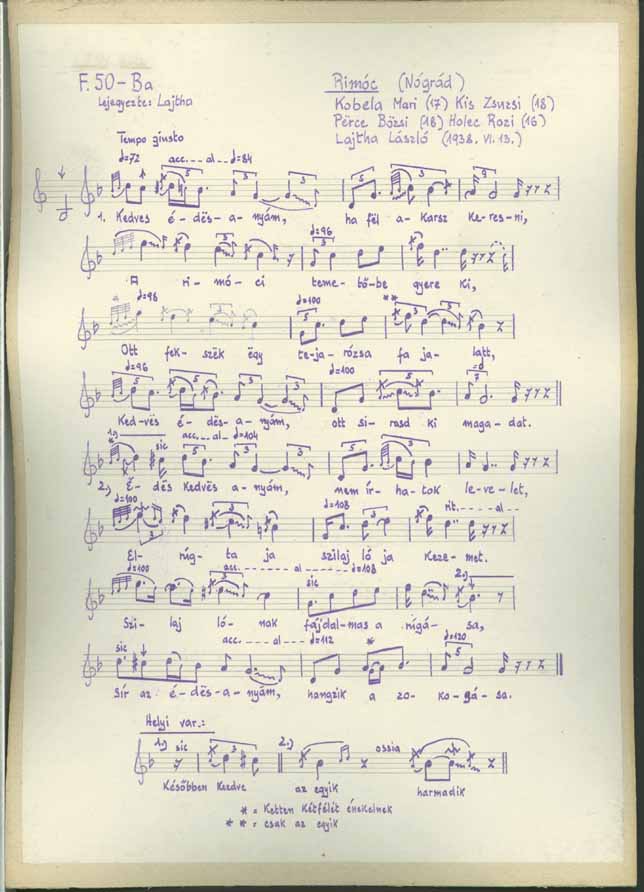 F. 50 - Ba
Lejegyezte: Lajtha
Rimóc (Nógrád)
Kobela Mari (17) Kis Zsuzsi (18)
Pérce Bözsi (18) Holec Rozi (16)
Lajtha László (1938. VI. 13.)
Tempo giusto
♩=72 acc... al.. ♩=84
1. Kedves é- dës- a- nyám, ha fël a- karsz ke- res- ni,
♩=96
A ri- mó- ci teme- tő- be gyere ki,
♩=96 ♩=100
Ott fek- szëk ëgy te- ja- rózsa fa ja- latt,
♩=96 ♩=100
Ked- vës é- dës- a- nyám, ott si- rasd ki maga- dat.
1.) sic acc... al.. ♩=104
2.) É- dës kedvës a- nyám, nem ír- ha- tok le- ve- let,
♩=100 ♩=108 rit.... al..
El- rúg- ta ja szilaj ló ja keze- met.
♩=100 acc. ........ al ..... ♩=108
sic 2.)
Szi- laj ló- nak fájdal- mas a rúgá- sa,
sic acc. ... al ... ♩=112 * ♩=120
Sír az é- dës- a- nyám, hangzik a zo- ko- gá- sa.
Helyi var.:
1.) sic 2.) ossia
Későbben kezdve az egyik harmadik
* = Ketten kétfélét énekelnek
* * = csak az egyik